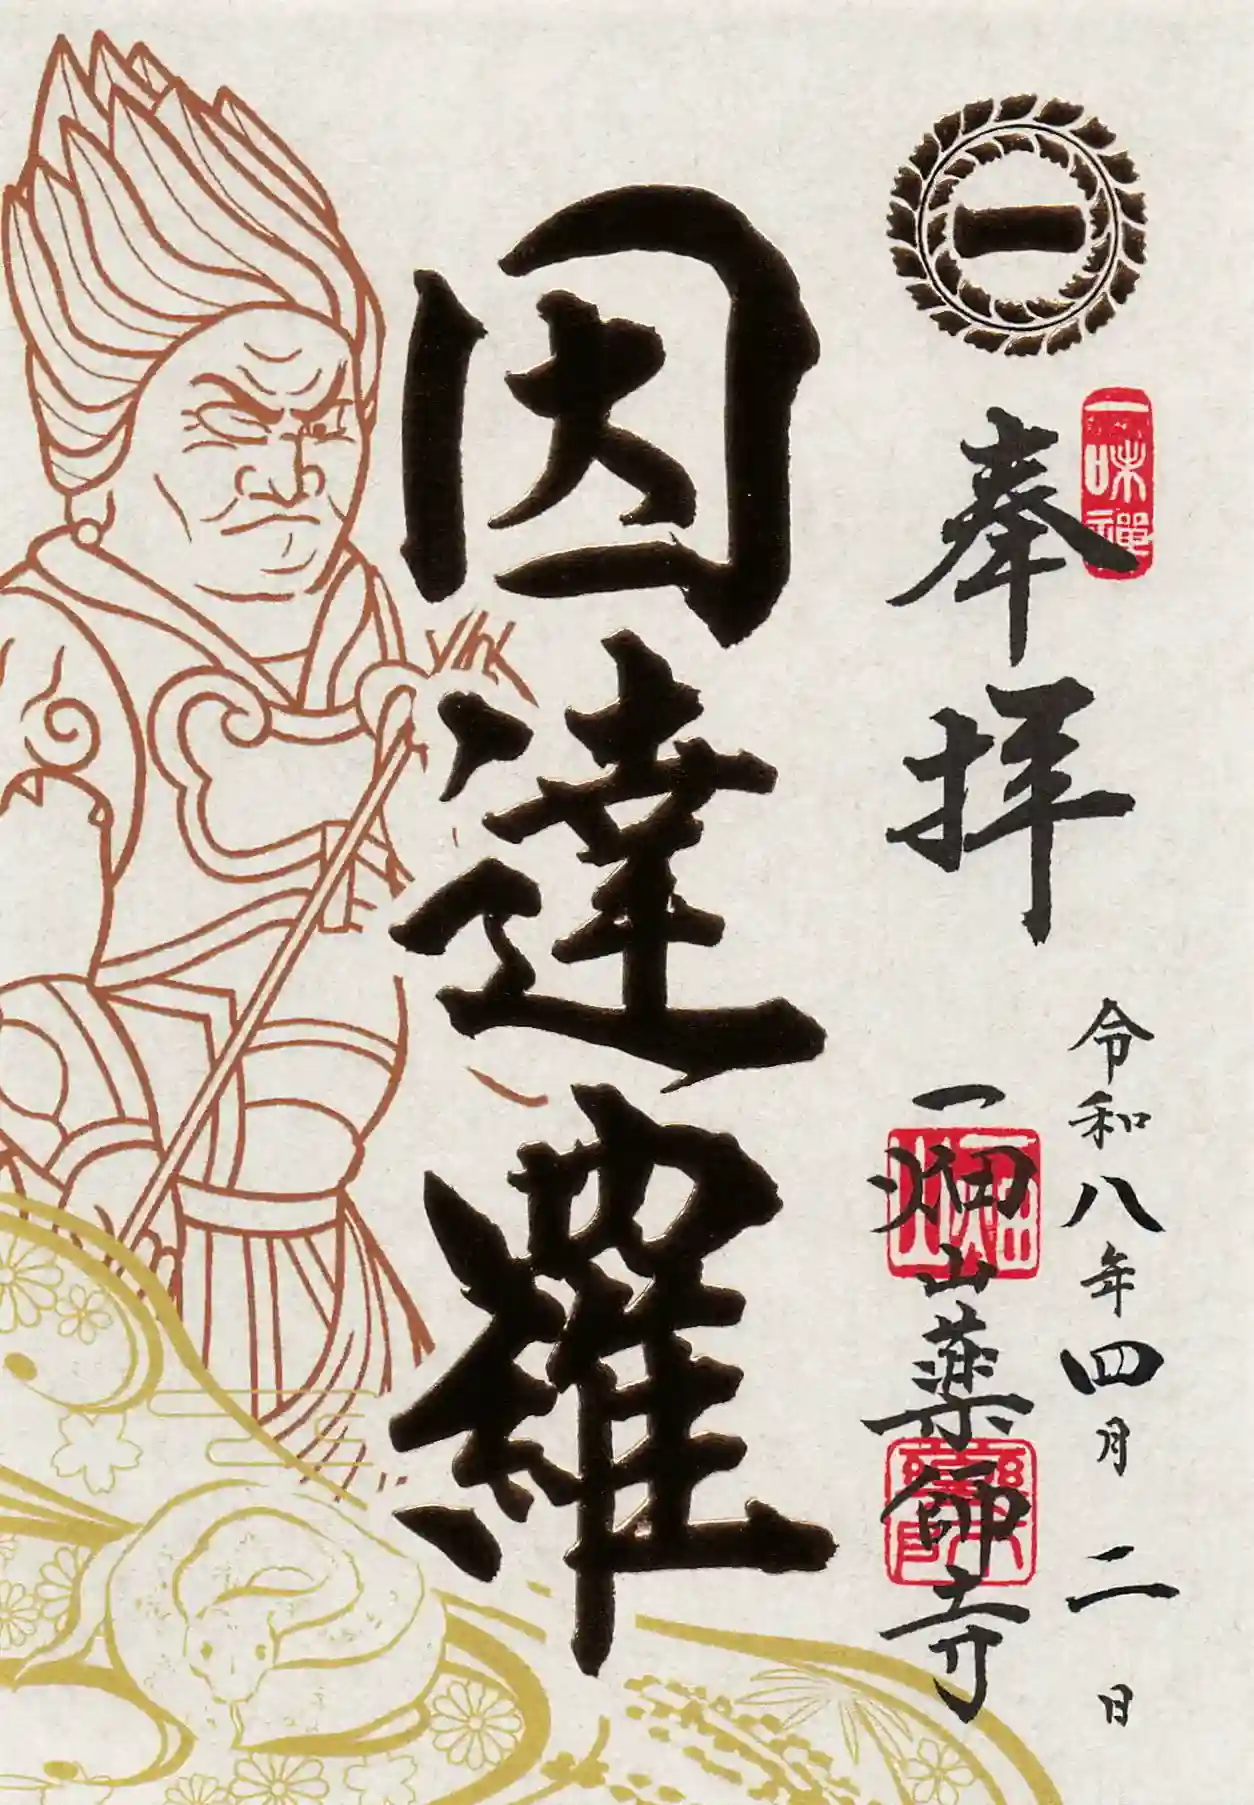 一
一味禅
奉拝
令和八年四月二日
一畑山薬師寺
因達羅